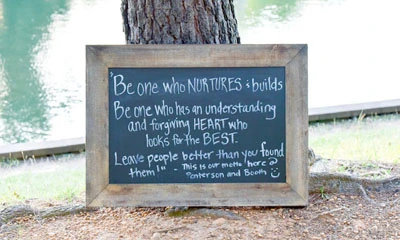 "Be one who NURTURES & builds
Be one who has an understanding
and forgiving HEART who
looks for the BEST.
Leave people better than you found
them!" - This is our motto here @
Penterson and Booth ☺